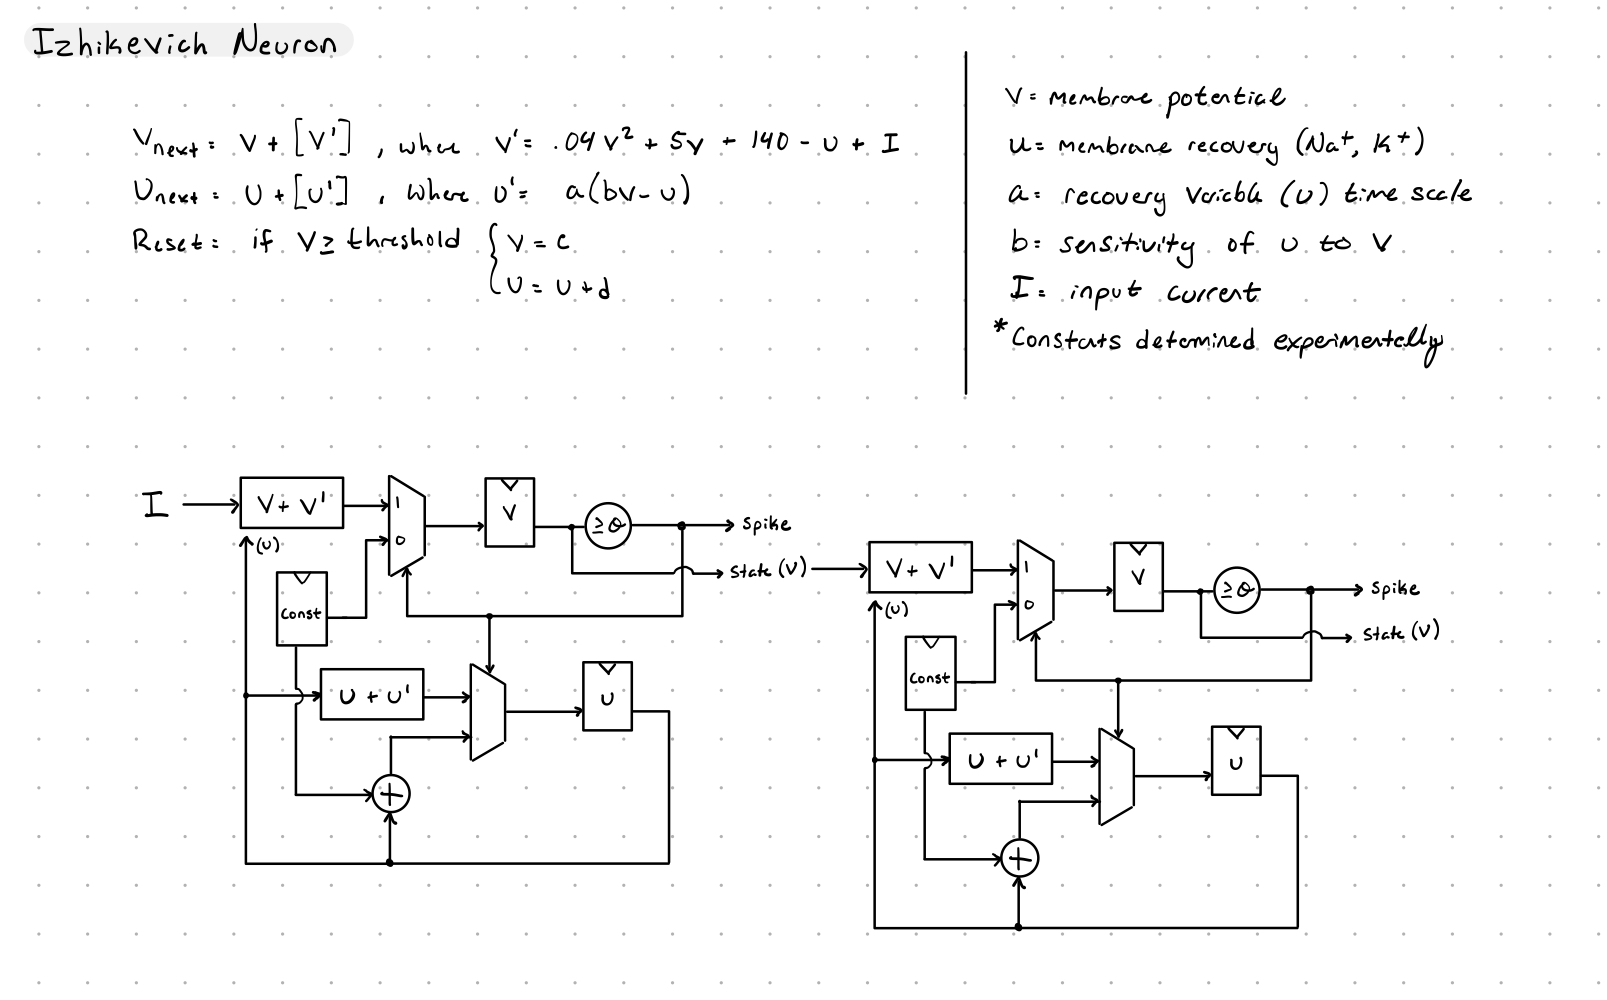 Izhikevich Neuron
Vnext = V + [V'] , where V' = .04v² + 5v + 140 - u + I
Unext = U + [U'] , where U' = a(bv - u)
Reset: if V ≥ threshold { V = c
U = U + d
V = Membrane potential
u = Membrane recovery (Na+, K+)
a = recovery variable (u) time scale
b = sensitivity of u to V
I = input current
* Constants determined experimentally
I
V + V'
1
0
V
≥ θ
Spike
State (V)
(U)
Const
U + U'
U
+
V + V'
1
0
V
≥ θ
Spike
State (V)
(U)
Const
U + U'
U
+